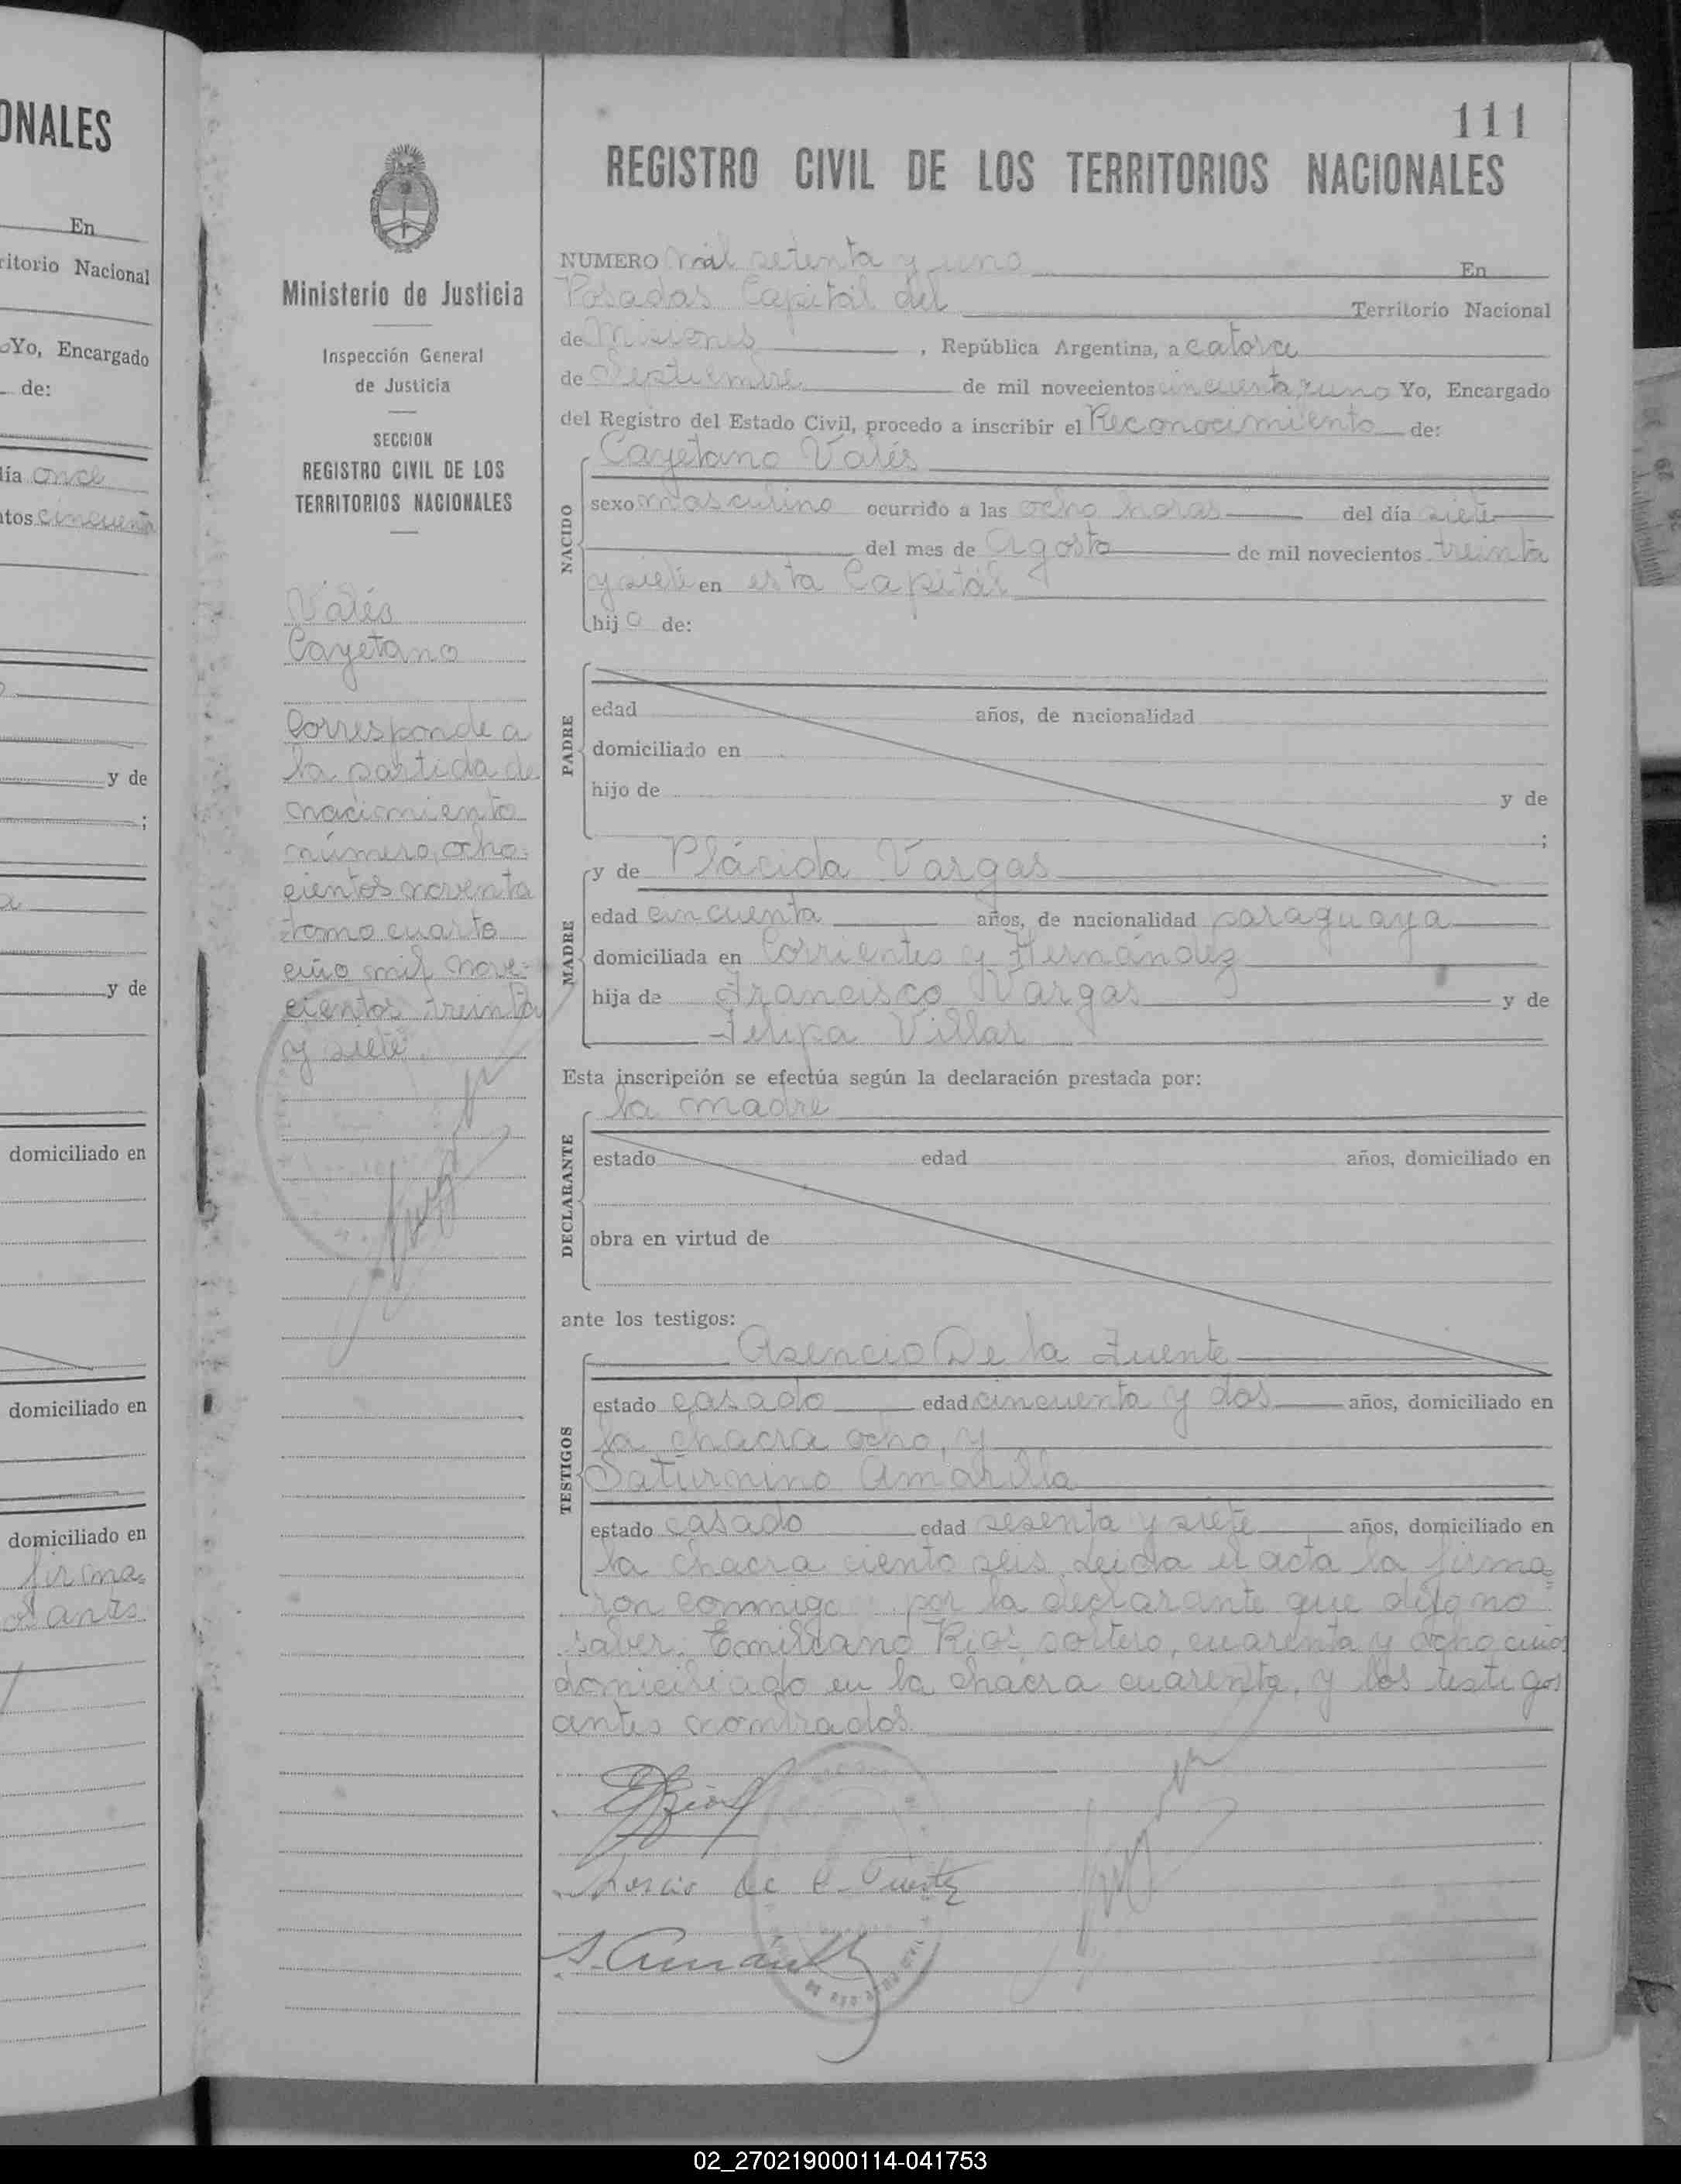 ONALES
En
ritorio Nacional
Yo, Encargado
de:
día once
tos cincuenta
y de
;
a
y de
domiciliado en
domiciliado en
domiciliado en
firma=
antes
Ministerio de Justicia
Inspección General
de Justicia
SECCION
REGISTRO CIVIL DE LOS
TERRITORIOS NACIONALES
Valés
Cayetano
Corresponde a
la partida de
nacimiento
número, ocho=
cientos noventa
tomo cuarto
año mil nove=
cientos treinta
y siete.
111
REGISTRO CIVIL DE LOS TERRITORIOS NACIONALES
NUMERO mil setenta y uno En
Posadas Capital del Territorio Nacional
de Misiones, República Argentina, a catorce
de Septiembre de mil novecientos cincuenta y uno Yo, Encargado
del Registro del Estado Civil, procedo a inscribir el Reconocimiento de:
Cayetano Valés
NACIDO
sexo masculino ocurrido a las ocho horas del día siete
del mes de Agosto de mil novecientos treinta
y siete en esta Capital
hijo de:
PADRE
edad años, de nacionalidad
domiciliado en
hijo de y de
;
y de Plácida Vargas
MADRE
edad cincuenta años, de nacionalidad paraguaya
domiciliada en Corrientes y Hernández
hija de Francisco Vargas y de
Felipa Villar
Esta inscripción se efectúa según la declaración prestada por:
la madre
DECLARANTE
estado edad años, domiciliado en
obra en virtud de
ante los testigos:
Asencio De la Fuente
TESTIGOS
estado casado edad cincuenta y dos años, domiciliado en
la chacra ocho, y
Saturnino Amarilla
estado casado edad sesenta y siete años, domiciliado en
la chacra ciento seis. Leida el acta la firma=
ron conmigo por la declarante que dijo no
saber. Emiliano Rios soltero, cuarenta y ocho años
domiciliado en la chacra cuarenta, y los testigos
antes nombrados.
E Rios
de l Fuente
S. Amarilla
02_270219000114-041753